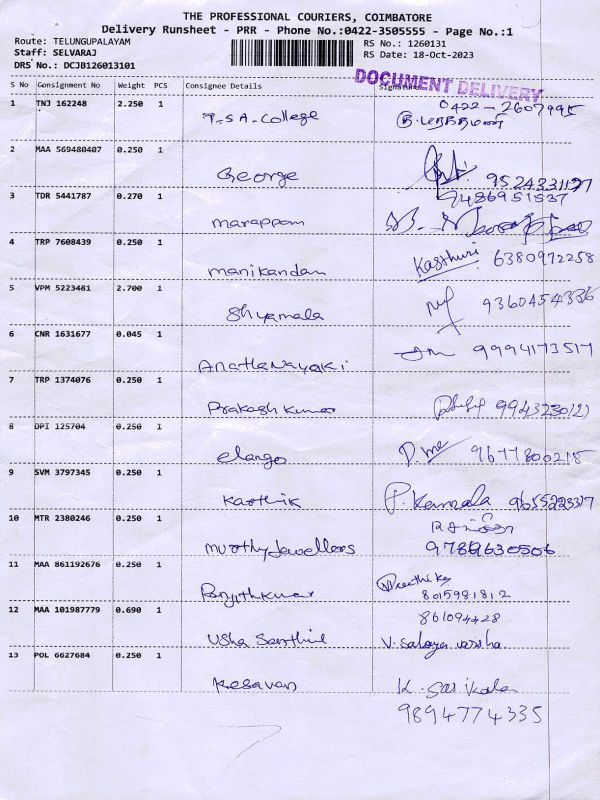 THE PROFESSIONAL COURIERS, COIMBATORE
Delivery Runsheet - PRR - Phone No.:0422-3505555 - Page No.:1
Route: TELUNGUPALAYAM
Staff: SELVARAJ
DRS No.: DCJB126013101
RS No.: 1260131
RS Date: 18-Oct-2023
DOCUMENT DELIVERY
S No Consignment No Weight PCS Consignee Details Signature
1 TNJ 162248 2.250 1 T.S.A. College 0422-2607995
2 MAA 569480407 0.250 1 George 9524331197
9486951537
3 TDR 5441787 0.270 1 marappan
4 TRP 7608439 0.250 1 manikandan Kasthuri 6380972258
5 VPM 5223481 2.700 1 Shyamala 9360454336
6 CNR 1631677 0.045 1 9994173517
7 TRP 1374076 0.250 1 Prakash kumar
8 DPI 125704 0.250 1 elango 9677800215
9 SVM 3797345 0.250 1 Karthik P. Kamala 9655223317
10 MTR 2380246 0.250 1 murthy Jewellers 9789630506
11 MAA 861192676 0.250 1 Ranjithkumar 8015981812
12 MAA 101987779 0.690 1 Usha Senthil 861094428
13 POL 6627684 0.250 1 Kesavan K. Sasikala
9894774335